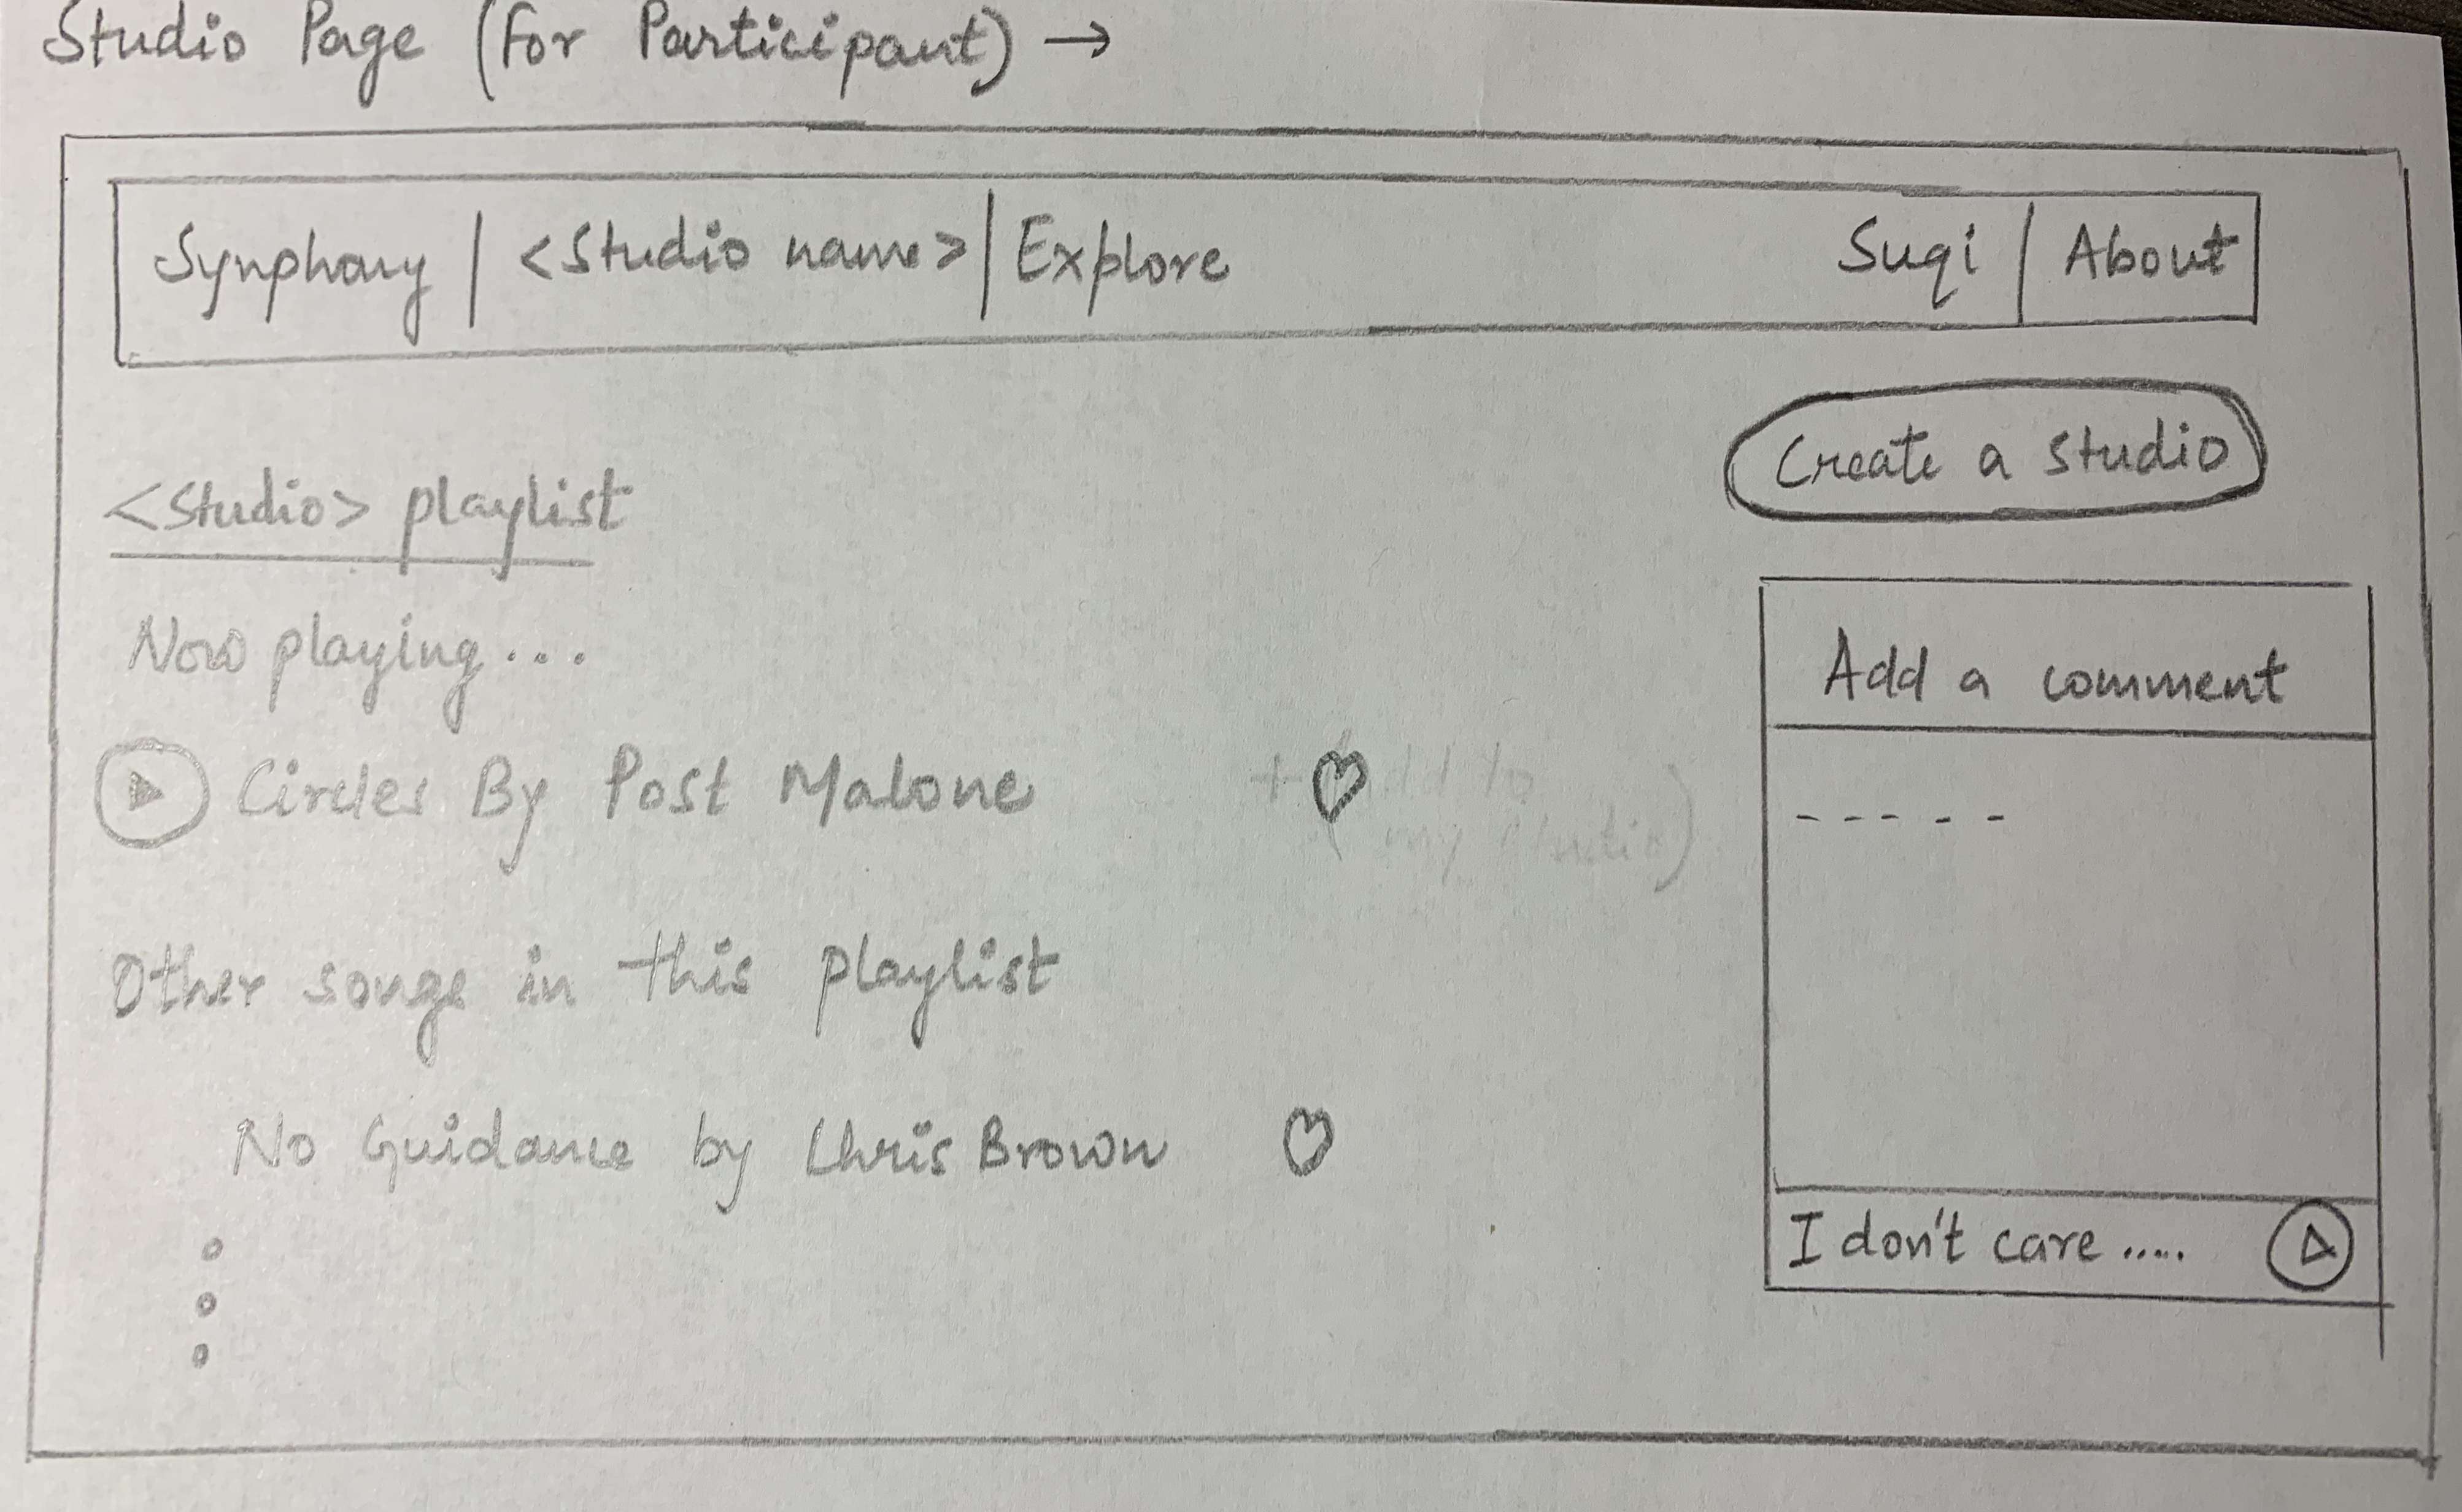 Studio Page (For Participant) →
Synphony | <Studio name> | Explore
Suqi | About
Create a studio
<Studio> playlist
Now playing...
Circles By Post Malone
+ Add to
(my studio)
Other songs in this playlist
No Guidance by Chris Brown
Add a comment
-----
I don't care .....